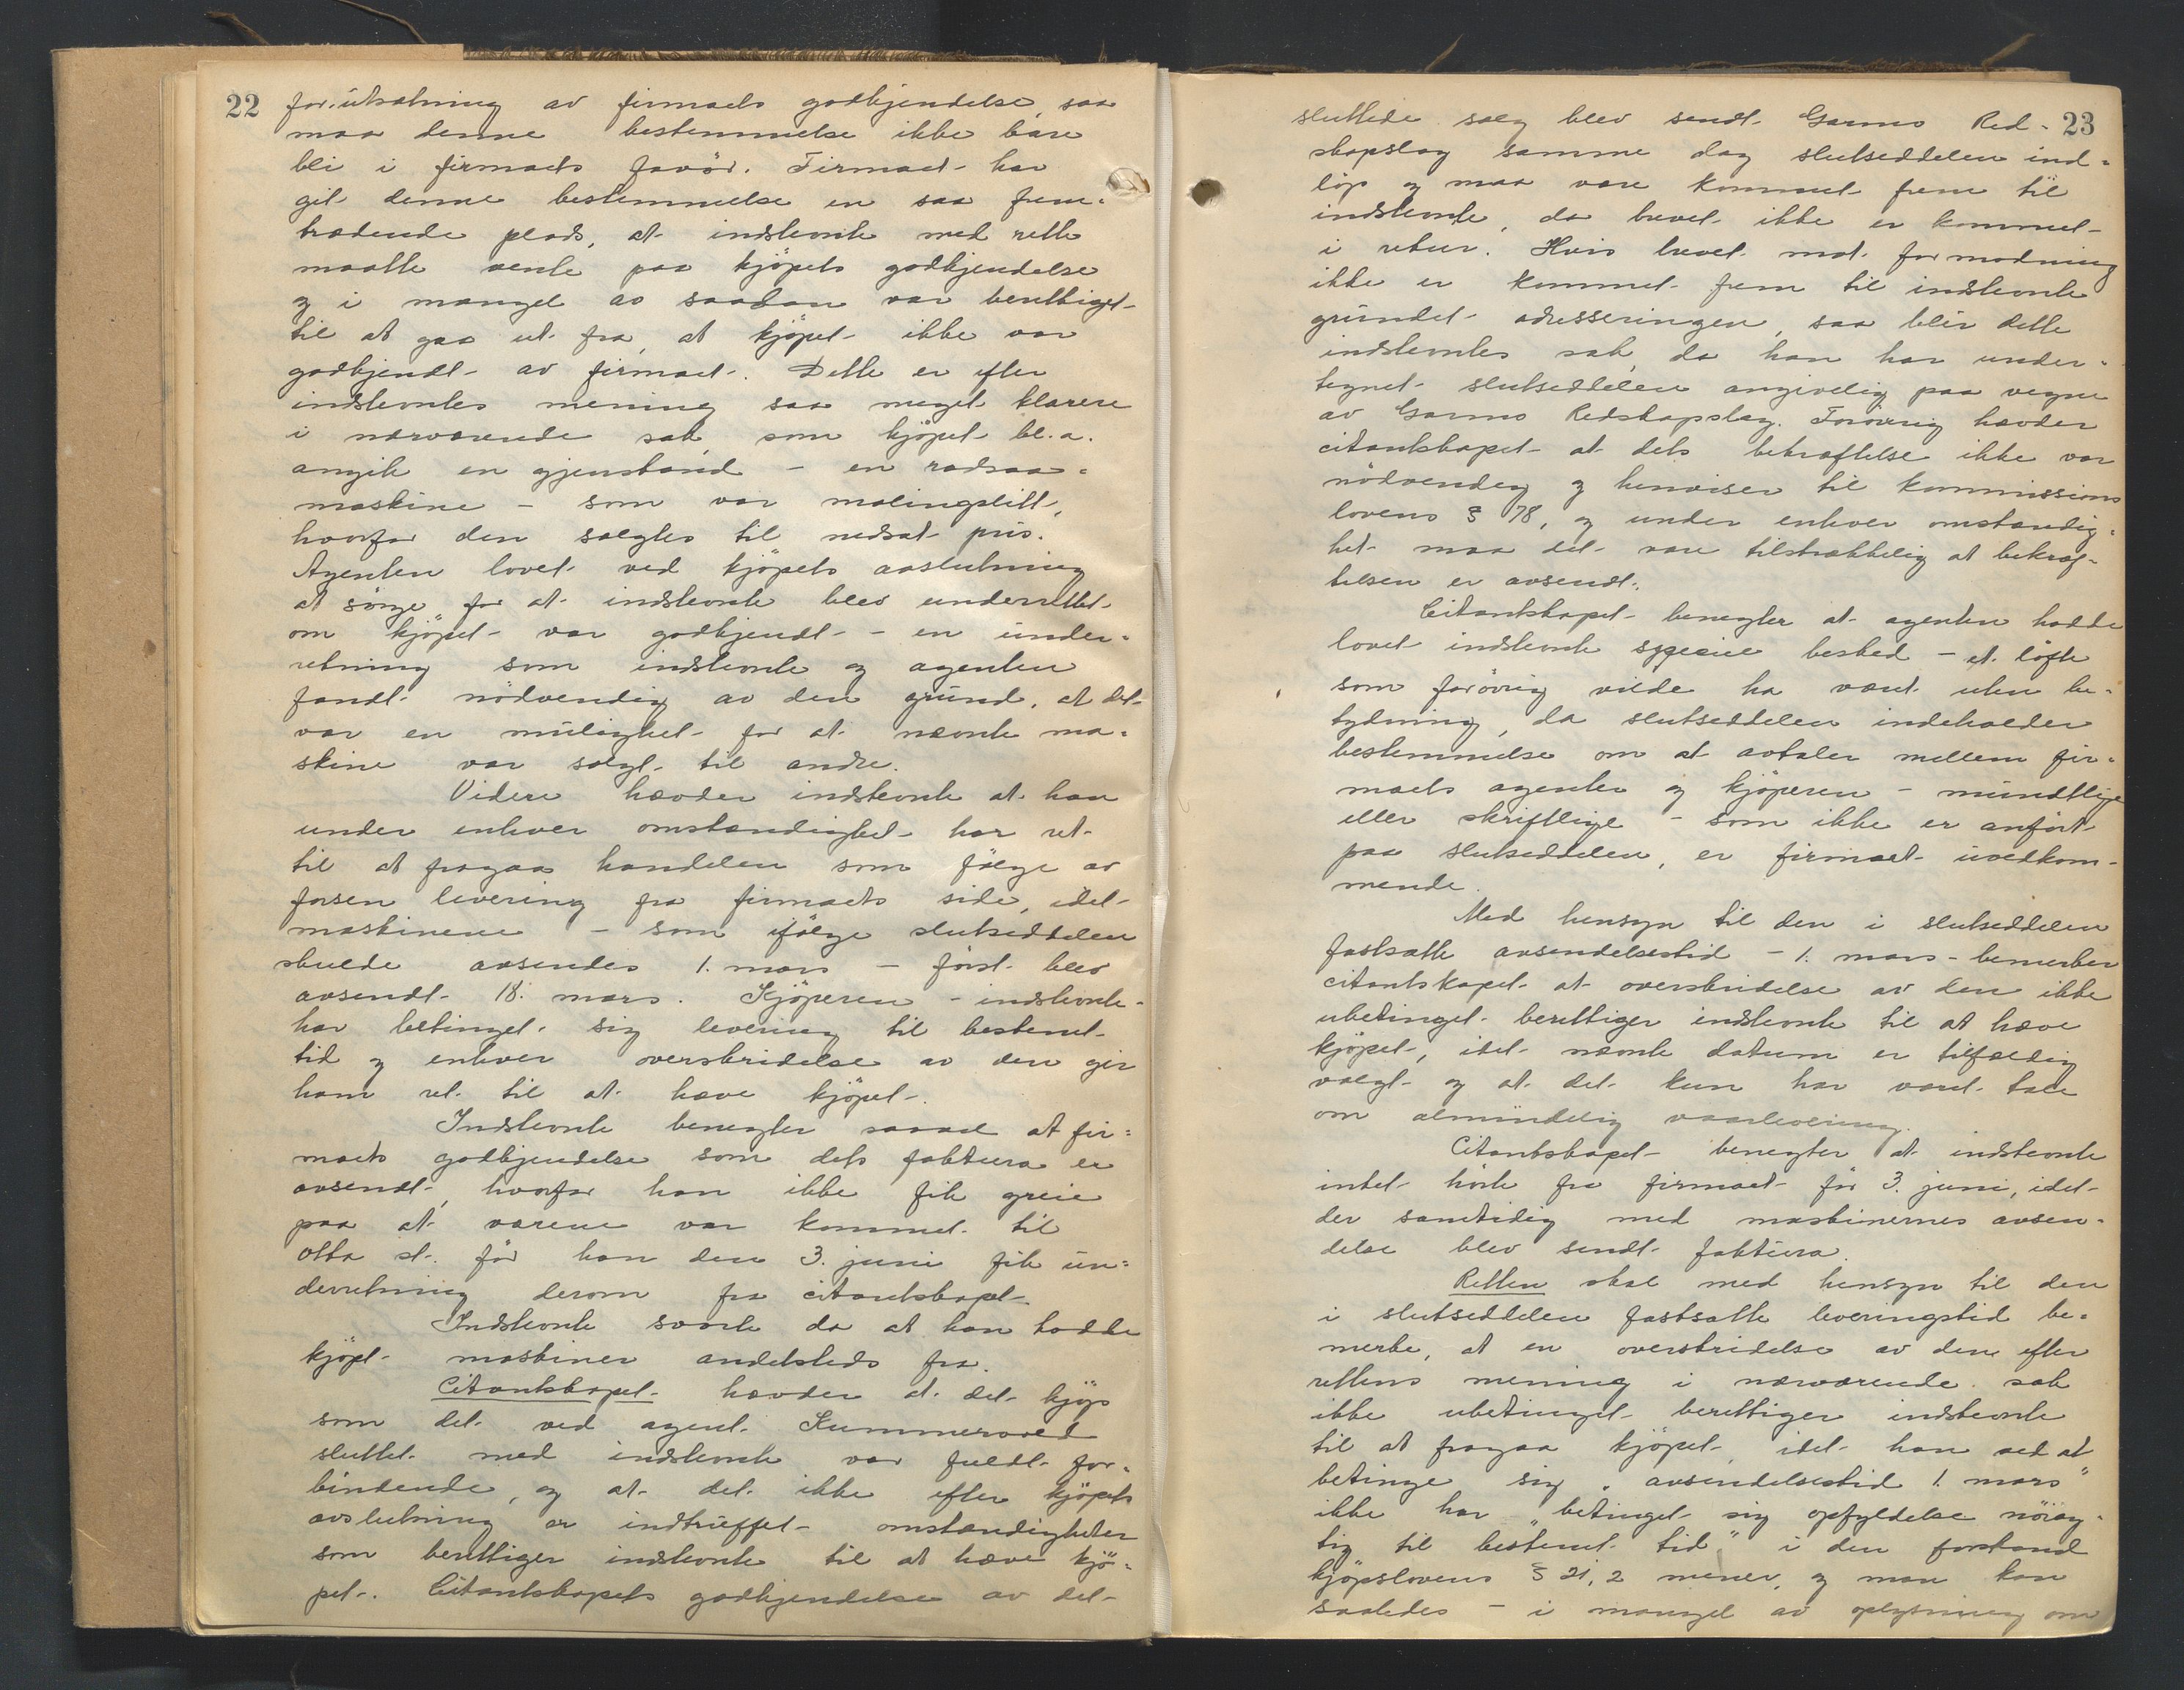 22
forutsætning av firmaets godkjendelse, saa
maa denne bestemmelse ikke bare
bli i firmaets favör. Firmaet har
git denne bestemmelse en saa frem=
trædende plads, at indstevnte med rette
maatte vente paa kjöpets godkjendelse
og i mangel av saadan var berettiget
til at gaa ut fra, at kjöpet ikke var
godkjendt av firmaet. Dette er efter
indstevntes mening saa meget klarere
i nærværende sak, som kjöpet bl.a.
angik en gjenstand – en radsaa=
maskine – som var malingslitt,
hvorfor den solgtes til nedsat pris.
Agenten lovet ved kjöpets avslutning
at sörge for at indstevnte blev underrettet
om kjöpet var godkjendt – en under=
retning som indstevnte og agenten
fandt nödvendig av den grund, at det
var en mulighet for at nævnte ma=
skine var solgt til andre.
Videre hævder indstevnte at han
under enhver omstændighet har ret
til at fragaa handelen som fölge av
forsen levering fra firmaets side, idet
maskinene – som ifölge slutseddelen
skulde avsendes 1. mars – först blev
avsendt 18. mars. Kjöperen – indstevnte –
har betinget sig levering til bestemt
tid og enhver overskridelse av den gir
ham ret til at hæve kjöpet.
Indstevnte benegter saavel at fir=
maets godkjendelse som dets faktura er
avsendt, hvorfor han ikke fik greie
paa at varene var kommet til
Otta st. för han den 3. juni fik un=
derretning derom fra citantskapet.
Indstevnte svarte da at han hadde
kjöpt maskiner andetsteds fra.
Citantskapet hævder at det kjöp
som det ved agent Kummerovd
sluttet med indstevnte var fuldt for=
bindende, og at det ikke efter kjöpets
avslutning er indtruffet omstændigheter
som berettiger indstevnte til at hæve kjö=
pet. Citantskapets godkjendelse av det
23
sluttede salg blev sendt Garmo Red=
skapslag samme dag slutseddelen ind=
löp og maa være kommet frem til
indstevnte, da brevet ikke er kommet
i retur. Hvis brevet mot formodning
ikke er kommet frem til indstevnte
grundet adresseringen, saa blir dette
indstevntes sak, da han har under=
tegnet slutseddelen angivelig paa vegne
av Garmo Redskapslag. Forövrig hævder
citantskapet at dets bekræftelse ikke var
nödvendig og henviser til kommissions
lovens § 78, og under enhver omstændig=
het maa det være tilstrækkelig at bekræf=
telsen er avsendt.
Citantskapet benegter at agenten hadde
lovet indstevnte speciel besked – et löfte
som forövrig vilde ha været uten be=
tydning, da slutseddelen indeholder
bestemmelse om at avtaler mellem fir=
maets agenter og kjöperen – mundtlige
eller skriftlige – som ikke er anfört
paa slutseddelen, er firmaet uvedkom=
mende.
Med hensyn til den i slutseddelen
fastsatte avsendelsestid – 1. mars – bemerker
citantskapet at overskridelse av den ikke
ubetinget berettiger indstevnte til at hæve
kjöpet, idet nævnte datum er tilfældig
valgt og at det kun har været tale
om almindelig vaarlevering.
Citantskapet benegter at indstevnte
intet hörte fra firmaet för 3. juni, idet
der samtidig med maskinernes avsen=
delse blev sendt faktura.
Retten skal med hensyn til den
i slutseddelen fastsatte leveringstid be=
merke, at en overskridelse av den efter
rettens mening i nærværende sak
ikke ubetinget berettiger indstevnte
til at fragaa kjöpet, idet han ved at
betinge sig „avsendelsestid 1. mars"
ikke har „betinget sig opfyldelse nöiag=
tig til bestemt tid" i den forstand
kjöpslovens § 21, 2 mener, og man kan
saaledes – i mangel av oplysning om